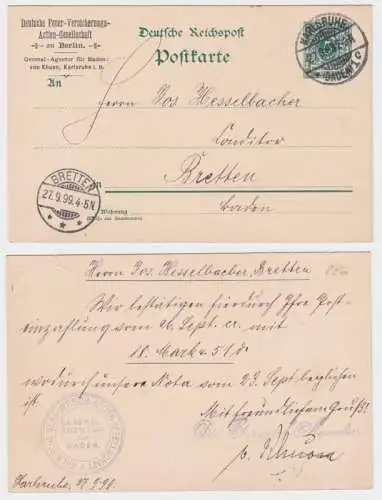 Deutsche Feuer-Versicherungs-
Actien-Gesellschaft
zu Berlin.
General-Agentur für Baden:
Karlsruhe i. B.
Deutsche Reichspost
Postkarte
An
Herrn Jos Hesselbacher
Conditor
Bretten
Baden
KARLSRUHE
BADEN
BRETTEN
27.9.99.4-5N.
Herrn Jos. Hesselbacher, Bretten
Wir bestätigen hierdurch Ihre Post-
einzahlung vom 26. Sept. cr. mit
18. Mark 51 d
wodurch unsere Nota vom 23. Sept beglichen
ist.
Mit freundlichem Gruß!
Karlsruhe, 27.9.99.